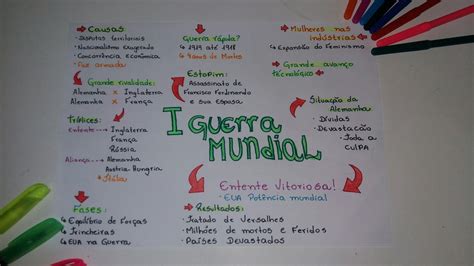 Causas
→ Disputas territoriais
• Nacionalismo Exagerado
• Concorrência econômica
• Paz armada
Grande rivalidade:
Alemanha x Inglaterra
Alemanha x França
Tríplices:
Entente → Inglaterra
França
Rússia
Aliança → Alemanha
Áustria-Hungria
Itália
Fases:
↳ Equilíbrio de Forças
↳ Trincheiras
↳ EUA na Guerra
Guerra rápida?
↳ 1914 até 1918
↳ 4 anos de Mortes
Estopim:
Assassinato de
Francisco Ferdinando
e sua Esposa
I GUERRA
MUNDIAL
Entente Vitoriosa!
• EUA Potência mundial
→ Resultados:
• Tratado de Versalhes
• Milhões de mortos e Feridos
• Países Devastados
→ Mulheres nas
Indústrias
↳ Expansão do Feminismo
→ Grande avanço
tecnológico
Situação da
Alemanha
• Dívidas
• Devastação
• Toda a
CULPA